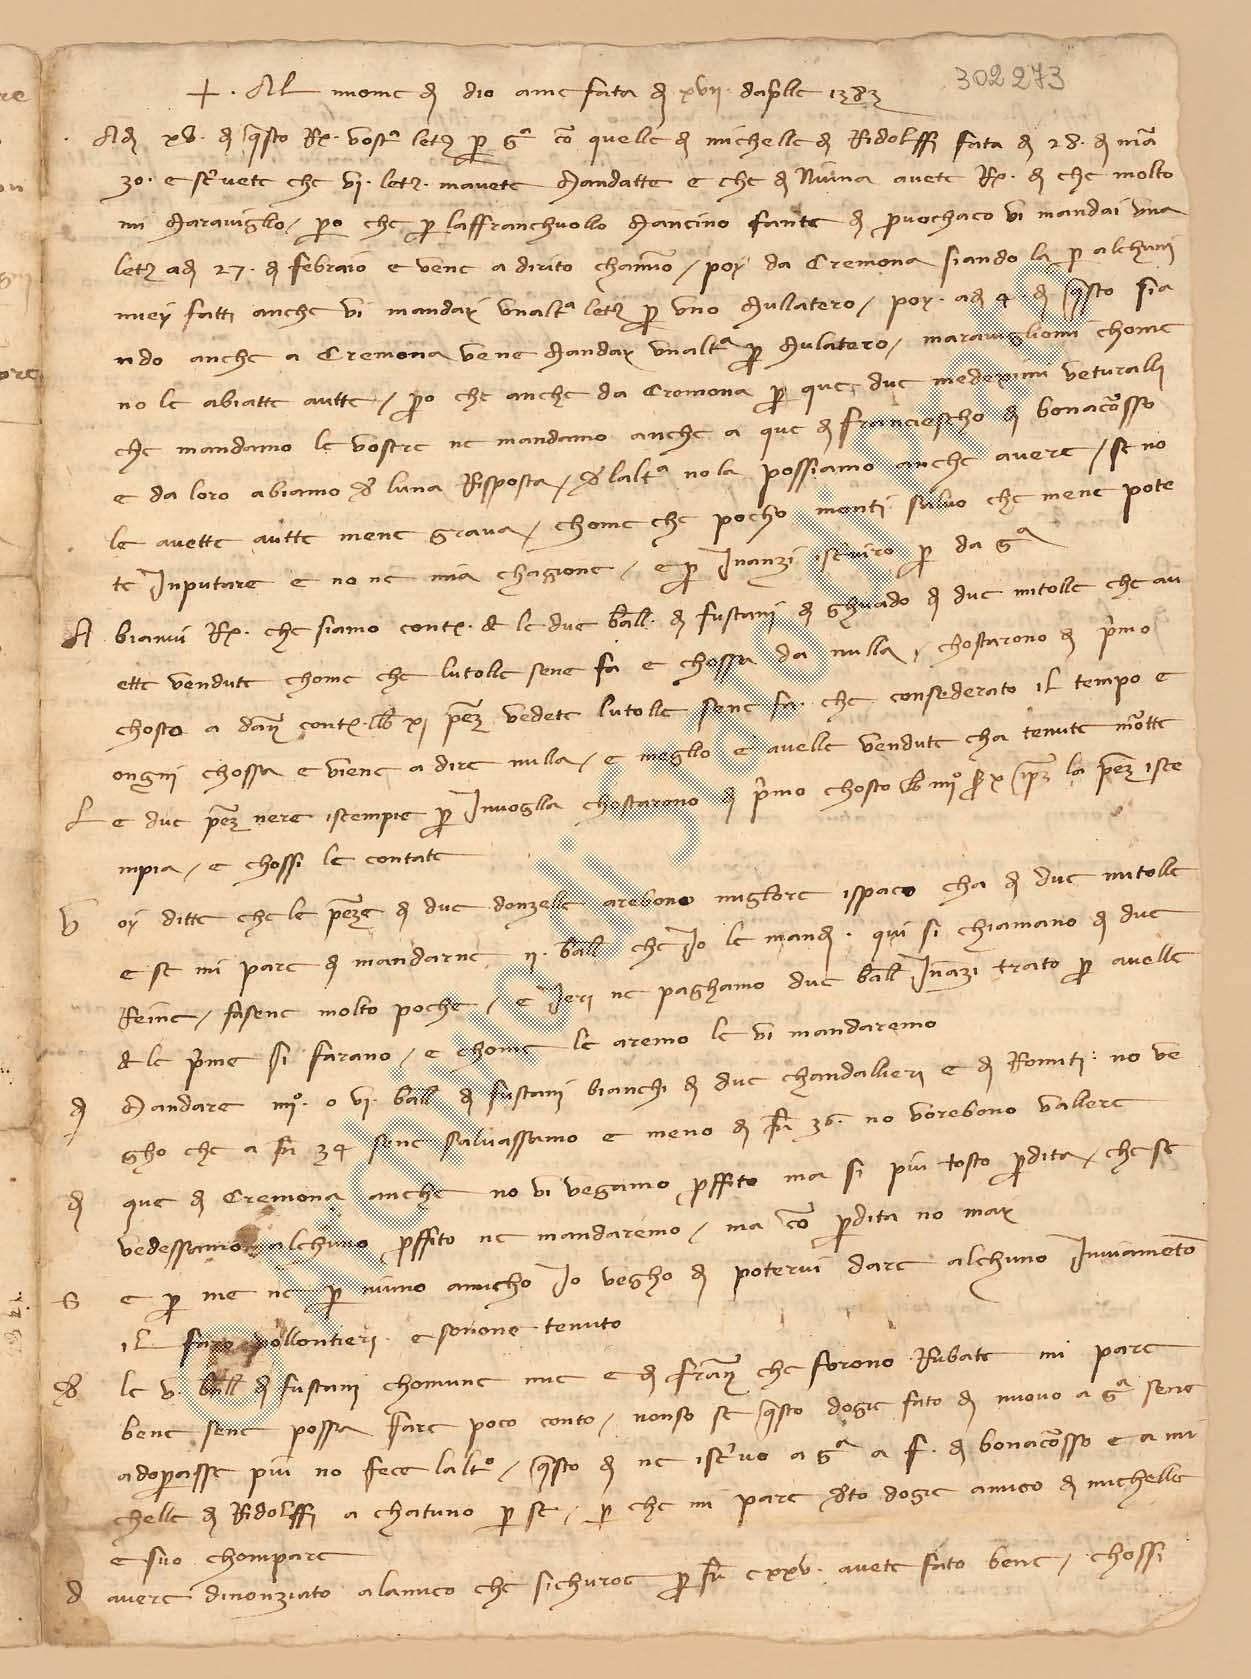 302273
+ Al nome di dio ame fata di xvii d'aprile 1383
Adì xv di questo R. vostra letera per G.a con quelle di michelle di Ridolffi fata dì 28 di marzo
30 e scrivete che vi letere m'avete Mandatte e che di Niuna avete R. di che molto
mi Maraviglio, però che per laffranchuollo Mancino fante di provochaco vi mandai una
letera adì 27 di febraio e vene a dirito chamino, poy da Cremona siando la per alchuni
miey fatti anche vi manday un altra letera per uno Mullatero, poy adì 4 di questo sia
ndo anche a Cremona vene Manday un altra per Mulatero, maravigliomi chome
no le abiatte autte, però che anche da Cremona per que due medeximi veturalli
che mandamo le vostre ne mandamo anche a que di franciescho di bonachorsso
e da loro abiamo de l una Risposta, de l altra no la possiamo anche avere, se no
le avette autte mene grava, chome che pocho monti salvo che mene pote
te Inputare e no n'è mia chagione, e per Inanzi iscrivirò per da G.a
A biamvi R. che siamo contenti de le due balle di fustani di ghuado di due mitolle che av
ette vendute chome che l utolle sene fa e chossa da nulla, chostarono di primo
chosto a danari contanti lb xi peza vedete l utolle sene fa che consederato il tempo e
ongni chossa e viene a dire nulla, e meglio e avelle vendute cha tenute mortte
L e due peze nere istempie per Invoglia chostarono di primo chosto lb iiii° s x inperiali la peza iste
mpia, e chossi le contate
V oy ditte che le peze di due donzelle arebono migliore ispaco cha di due mitolle
e se mi pare di mandarne ii balle che Io le mandi. qui si chiamano di due
Reine, fasene molto poche, e Ieri ne paghamo due balle Inanzi trato per avelle
de le prime si farano, e chome le aremo le vi mandaremo
di Mandare iiii° o vi balle di fustani bianchi di due chandallieri e di Romiti no ve
gho che a fiorini 34 sene salvassamo e meno di fiorini 36 no vorebono vallere
di que di Cremona anche no vi vegamo proffito ma si più tosto perdita, che se
vedessamo alchuno proffito ne mandaremo, ma con perdita no may
S e per me nè per niuno amicho Io vegho di potervi dare alchuno Inviamento
il farò vollontieri e sonone tenuto
de le v balle di fustani chomune mie e di franco che forono Rubate mi pare
bene sene possa Fare poco conto, nonso se questo dogie fato di nuovo a G.a sene
adoperasse più no fece l altro, questo dì ne iscrivo a G.a a F. di bonachorsso e a mi
chelle di Ridolffi a chatuno per sè, per che mi pare detto dogie amico di michelle
e suo chompare
d avere dinonziato a l amico che sichuroe per fiorini cxxv avete fato bene, chossi